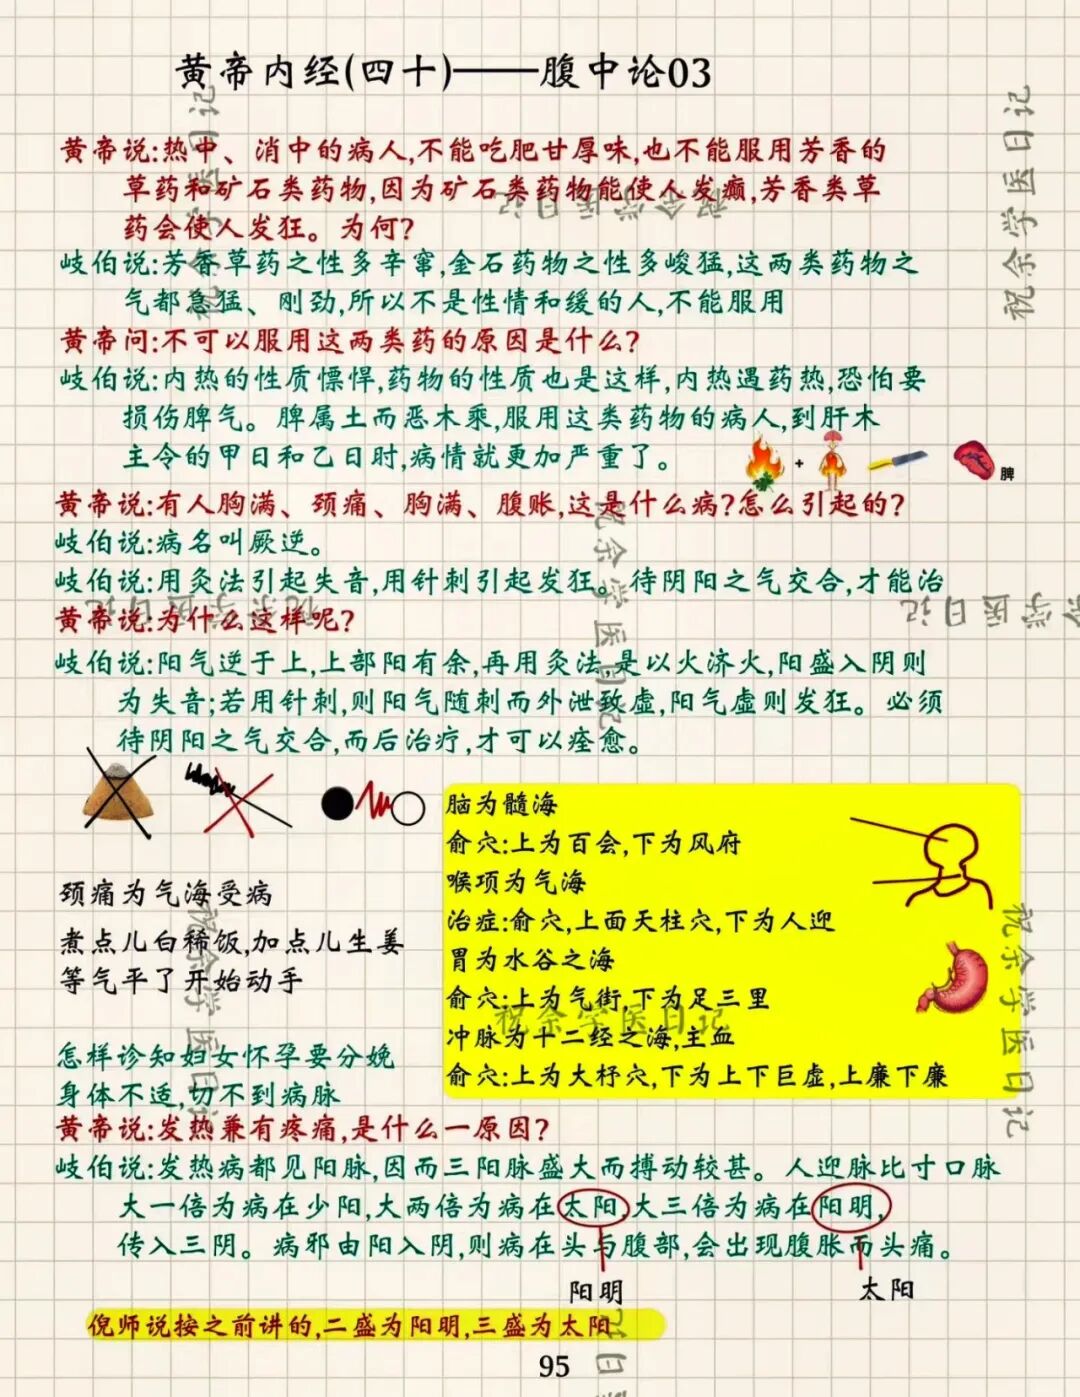 黄帝内经(四十)——腹中论03
黄帝说:热中、消中的病人,不能吃肥甘厚味,也不能服用芳香的
草药和矿石类药物,因为矿石类药物能使人发癫,芳香类草
药会使人发狂。为何?
岐伯说:芳香草药之性多辛窜,金石药物之性多峻猛,这两类药物之
气都急猛、刚劲,所以不是性情和缓的人,不能服用
黄帝问:不可以服用这两类药的原因是什么?
岐伯说:内热的性质慓悍,药物的性质也是这样,内热遇药热,恐怕要
损伤脾气。脾属土而恶木乘,服用这类药物的病人,到肝木
主令的甲日和乙日时,病情就更加严重了。
+
脾
黄帝说:有人胸满、颈痛、胸满、腹账,这是什么病?怎么引起的?
岐伯说:病名叫厥逆。
岐伯说:用灸法引起失音,用针刺引起发狂。待阴阳之气交合,才能治
黄帝说:为什么这样呢?
岐伯说:阳气逆于上,上部阳有余,再用灸法,是以火济火,阳盛入阴则
为失音;若用针刺,则阳气随刺而外泄致虚,阳气虚则发狂。必须
待阴阳之气交合,而后治疗,才可以痊愈。
颈痛为气海受病
煮点儿白稀饭,加点儿生姜
等气平了开始动手
脑为髓海
俞穴:上为百会,下为风府
喉项为气海
治症:俞穴,上面天柱穴,下为人迎
胃为水谷之海
俞穴:上为气街,下为足三里
冲脉为十二经之海,主血
俞穴:上为大杼穴,下为上下巨虚,上廉下廉
怎样诊知妇女怀孕要分娩
身体不适,切不到病脉
黄帝说:发热兼有疼痛,是什么一原因?
岐伯说:发热病都见阳脉,因而三阳脉盛大而搏动较甚。人迎脉比寸口脉
大一倍为病在少阳,大两倍为病在太阳,大三倍为病在阳明,
传入三阴。病邪由阳入阴,则病在头与腹部,会出现腹胀而头痛。
阳明
太阳
倪师说按之前讲的,二盛为阳明,三盛为太阳
95
祝余学医日记
祝余学医日记
祝余学医日记
祝余学医日记
祝余学医日记
余学医日记
祝余学医日记
祝余学医日记
祝余学医日记
日记